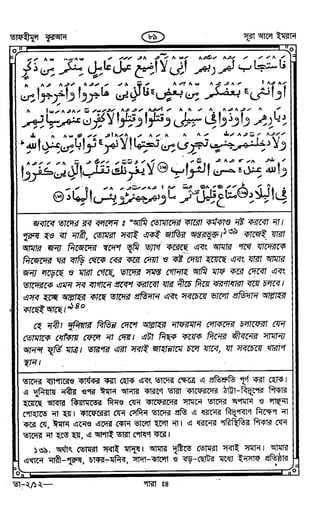 তাফহীমুল কুরআন
৮৯
সূরা আলে ইমরান
فَاسْتَجَابَ لَهُمْ رَبُّهُمْ أَنِّي لَا أُضِيعُ عَمَلَ عَامِلٍ مِنْكُمْ مِنْ ذَكَرٍ
أَوْ أُنْثَى ۖ بَعْضُكُمْ مِنْ بَعْضٍ ۖ فَالَّذِينَ هَاجَرُوا وَأُخْرِجُوا مِنْ
دِيَارِهِمْ وَأُوذُوا فِي سَبِيلِي وَقَاتَلُوا وَقُتِلُوا لَأُكَفِّرَنَّ عَنْهُمْ سَيِّئَاتِهِمْ
وَلَأُدْخِلَنَّهُمْ جَنَّاتٍ تَجْرِي مِنْ تَحْتِهَا الْأَنْهَارُ ۖ ثَوَابًا مِنْ عِنْدِ اللَّهِ ۗ
وَاللَّهُ عِنْدَهُ حُسْنُ الثَّوَابِ ۝ لَا يَغُرَّنَّكَ تَقَلُّبُ الَّذِينَ كَفَرُوا
فِي الْبِلَادِ ۝ مَتَاعٌ قَلِيلٌ ثُمَّ مَأْوَاهُمْ جَهَنَّمُ ۚ وَبِئْسَ الْمِهَادُ ۝
জবাবে তাদের রব বললেন : "আমি তোমাদের কারো কর্মকাণ্ড নষ্ট করবো না।
পুরুষ হও বা নারী, তোমরা সবাই একই জাতির অন্তরভুক্ত।১৩৯ কাজেই যারা
আমার জন্য নিজেদের স্বদেশ ভূমি ত্যাগ করেছে এবং আমার পথে যাদেরকে
নিজেদের ঘর বাড়ি থেকে বের করে দেয়া ও কষ্ট দেয়া হয়েছে এবং যারা আমার
জন্য লড়েছে ও মারা গেছে, তাদের সমস্ত গোনাহ আমি মাফ করে দেবো এবং
তাদেরকে এমন সব বাগানে প্রবেশ করাবো যার নীচে দিয়ে ঝরণাধারা বয়ে চলবে।
এসব হচ্ছে আল্লাহর কাছে তাদের প্রতিদান এবং সবচেয়ে ভালো প্রতিদান আল্লাহর
কাছেই আছে।"১৪০
হে নবী! দুনিয়ার বিভিন্ন দেশে আল্লাহর নাফরমান লোকদের চলাফেরা যেন
তোমাকে ধোঁকায় ফেলে না দেয়। এটা নিছক কয়েক দিনের জীবনের সামান্য
আনন্দ ফূর্তি মাত্র। তারপর এরা সবাই জাহান্নামে চলে যাবে, যা সবচেয়ে খারাপ
স্থান।
তাদের ব্যাপারেও কার্যকর করা হোক এবং তাদের ক্ষেত্রে এ প্রতিশ্রুতি পূর্ণ করা হোক।
এ দুনিয়ায় নবীর ওপর ঈমান আনার কারণে তারা কাফেরদের ঠাট্টা-বিদ্রূপের শিকার
হয়েছে আবার কিয়ামতের দিনও যেন কাফেরদের সামনে তাদের অপমান ও লাঞ্ছনা
পোহাতে না হয়। কাফেররা যেন সেদিন তাদের প্রতি এ ধরনের বিদ্রূপবাণ নিক্ষেপ না
করে যে, ঈমান এনেও এদের কোন ভালো হলো না। এ ধরনের পরিস্থিতির শিকার যেন
তাদের না হতে হয়, এ আশাই তারা পোষণ করে।
১৩৯. অর্থাৎ তোমরা সবাই মানুষ। আমার দৃষ্টিতে তোমরা সবাই সমান। আমার
এখানে নারী-পুরুষ, চাকর-মনিব, সাদা-কালো ও বড়-ছোটর মধ্যে ইনসাফ প্রতিষ্ঠার
তা-২/১২—
পারা ঃ৪